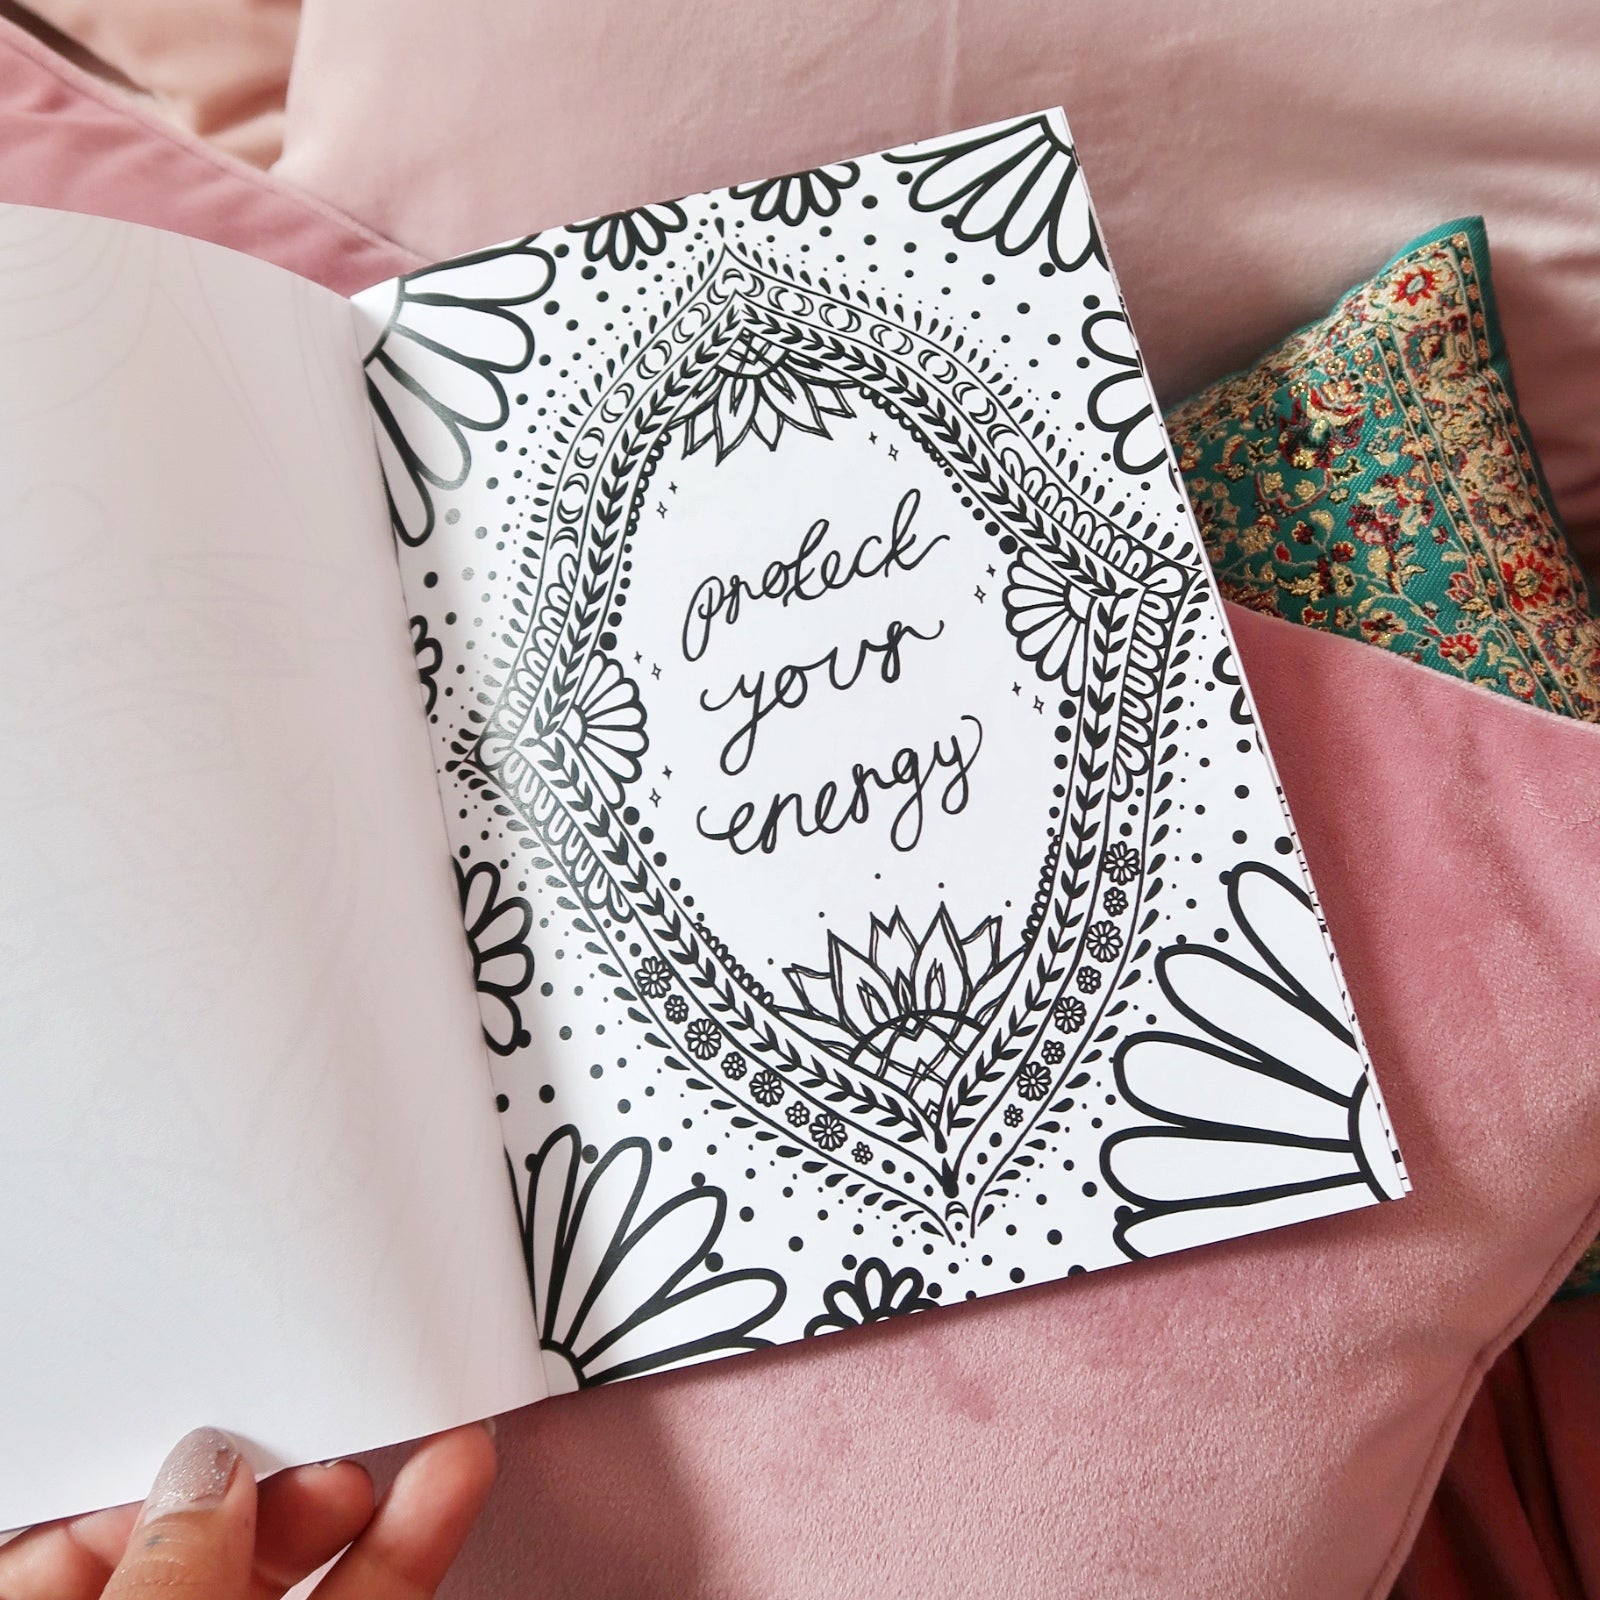 protect
your
energy